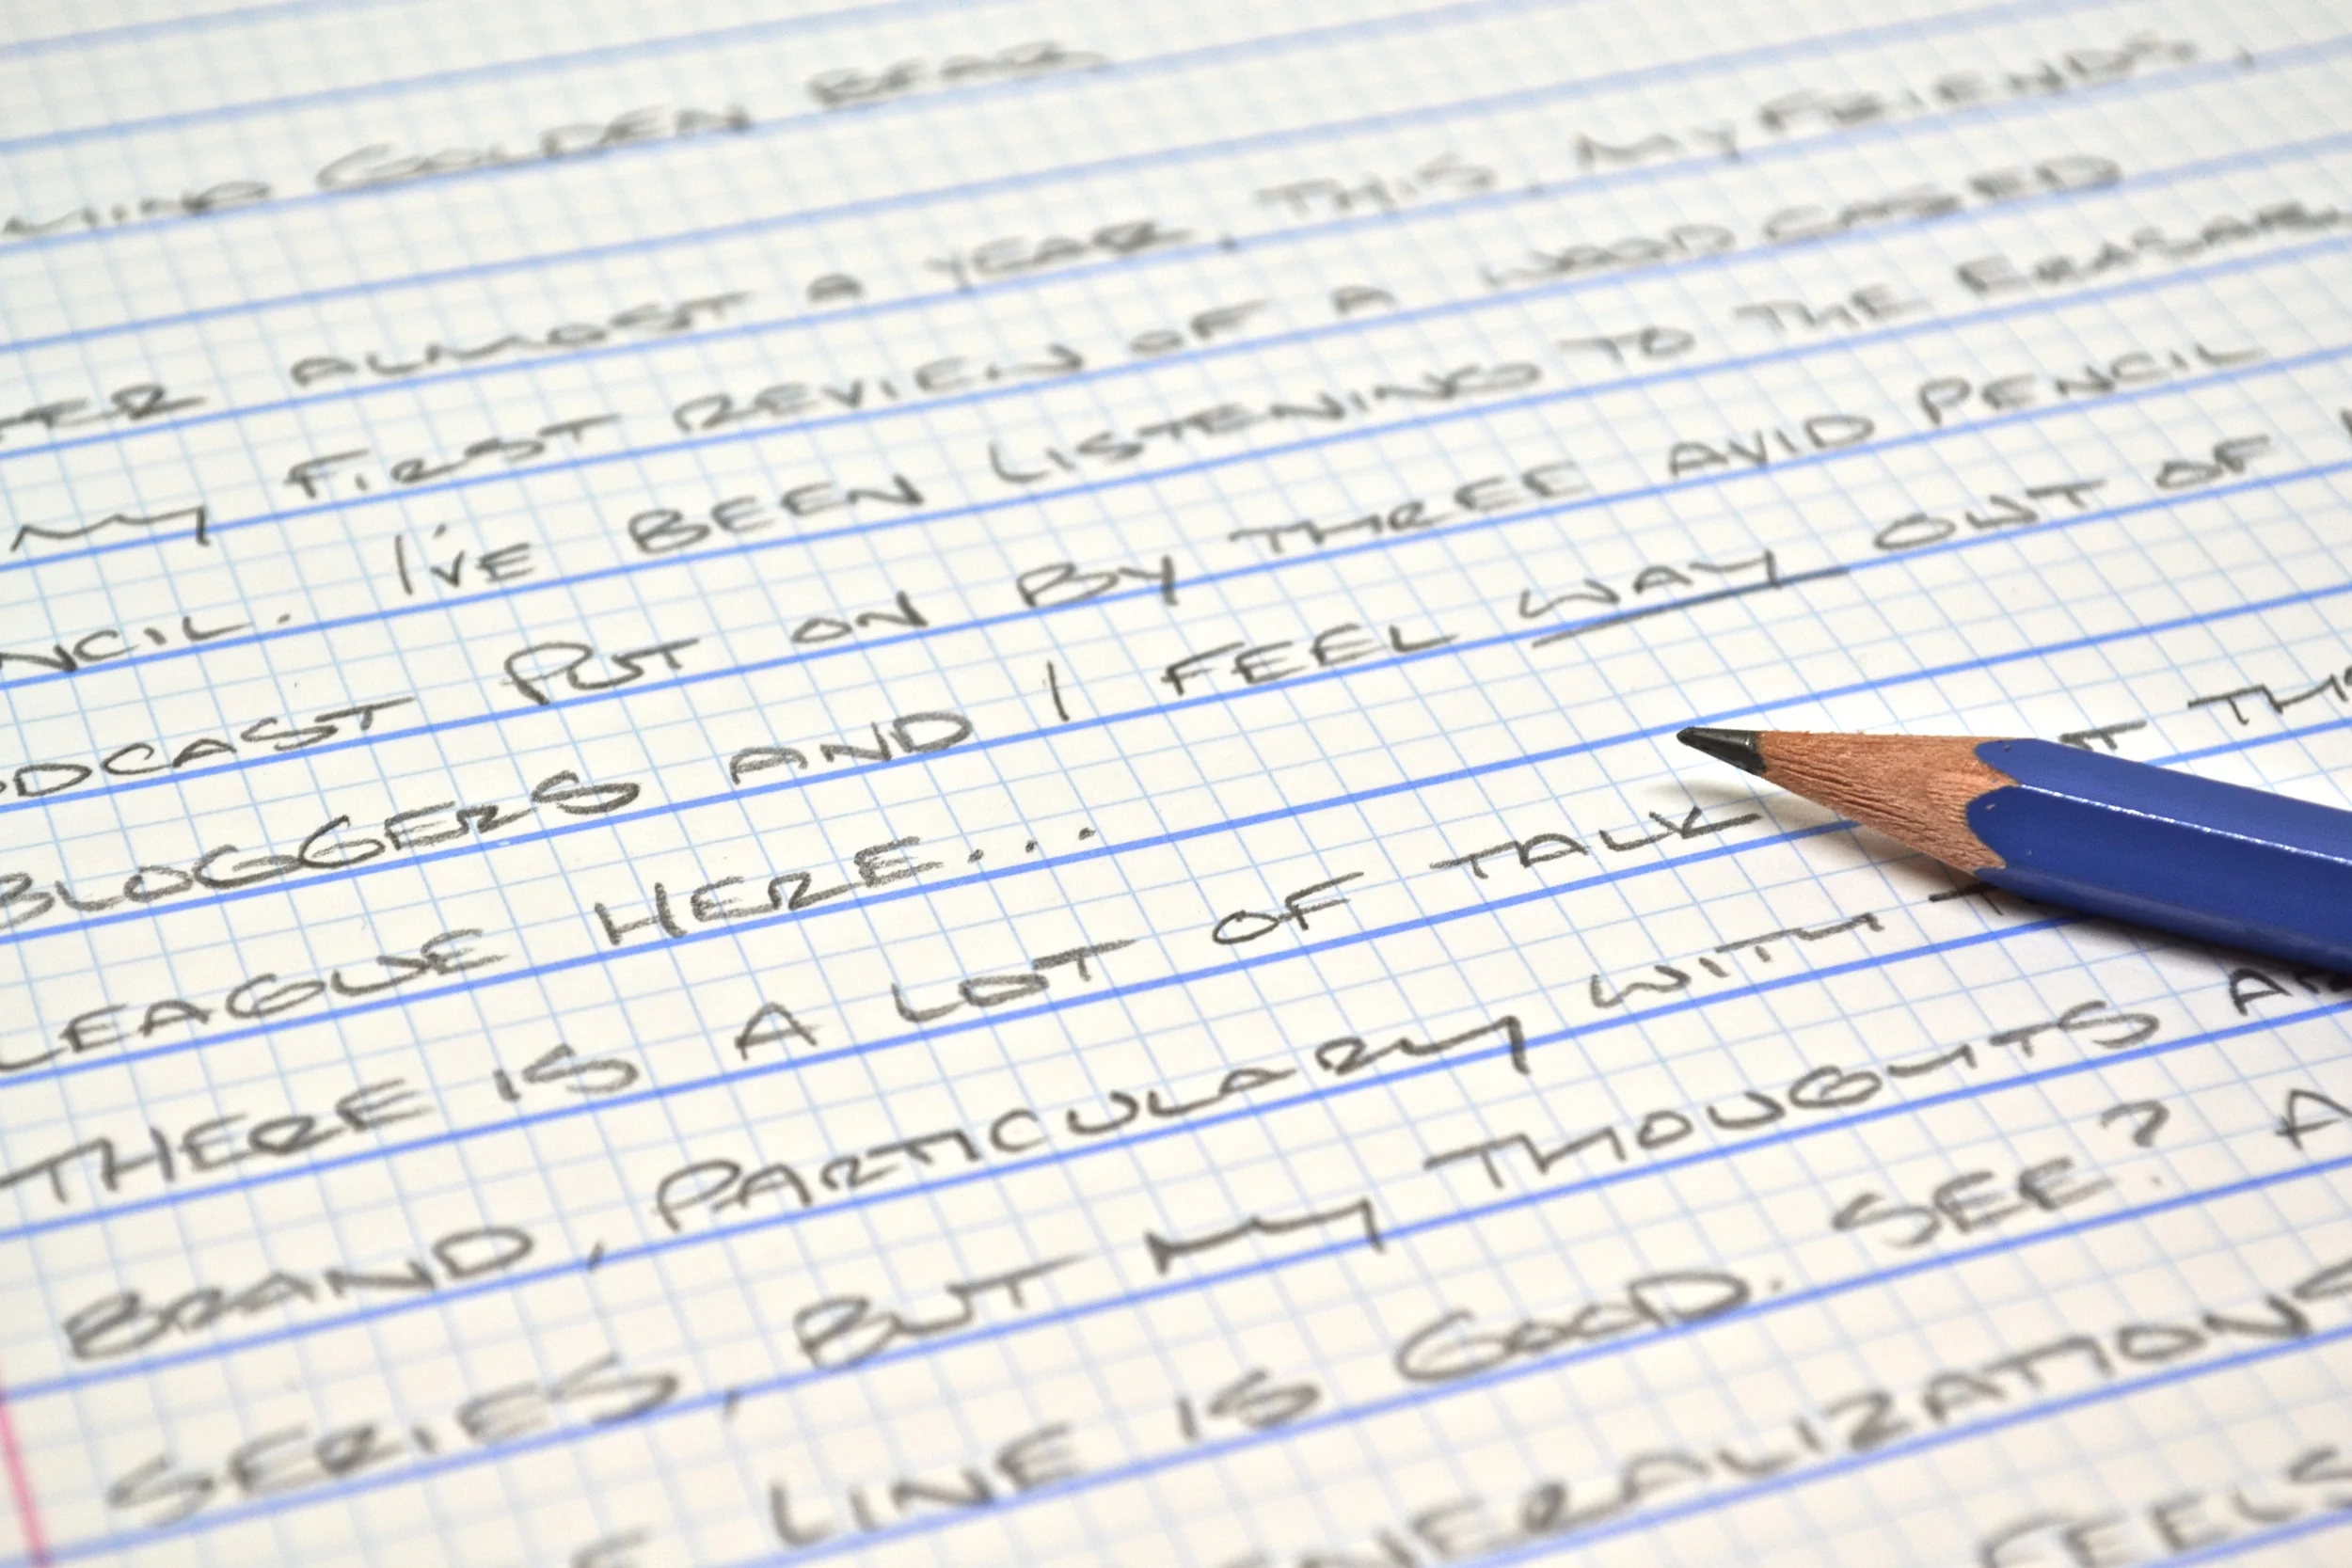 GOLDEN BEAR
ALMOST A YEAR, THIS, MY FRIENDS,
MY FIRST REVIEW OF A WOOD CASED
NCIL. I'VE BEEN LISTENING TO THE ERASABLE
ODCAST PUT ON BY THREE AVID PENCIL
BLOGGERS AND I FEEL WAY OUT OF
LEAGUE HERE...
THERE IS A LOT OF TALK
BRAND, PARTICULARY WITH
SERIES, BUT MY THOUGHTS
LINE IS GOOD. SEE? A
NERALIZATIONS
FEELS